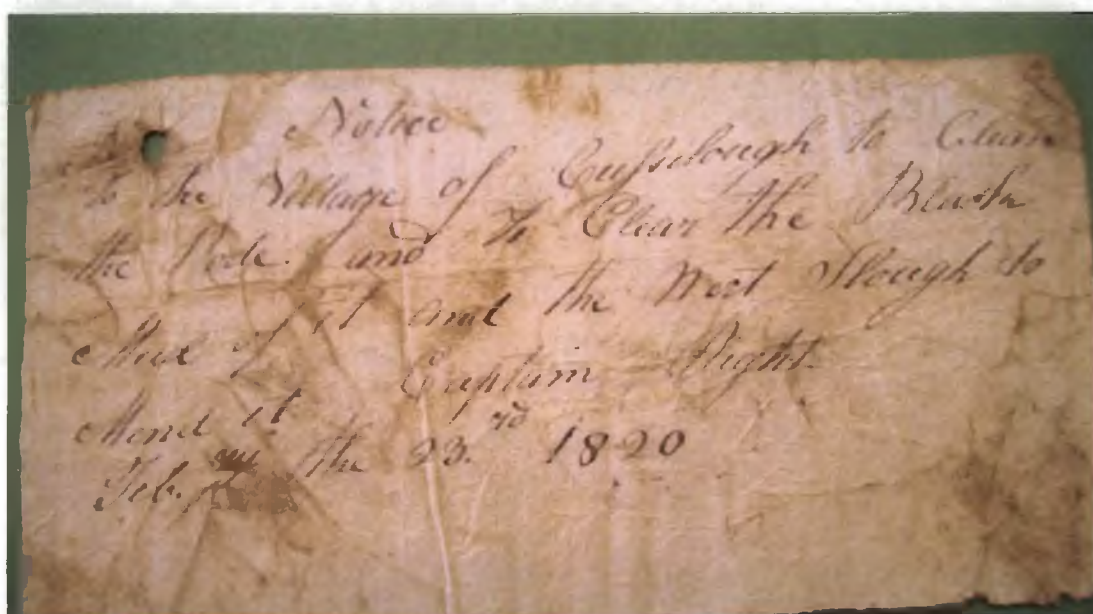 Notice
to the Village of Cusslough to Clean
the Rode. and to Clear the
of it and the Next Slough to
Mend it Captain Right.
Feb.ry the 23.rd 1820